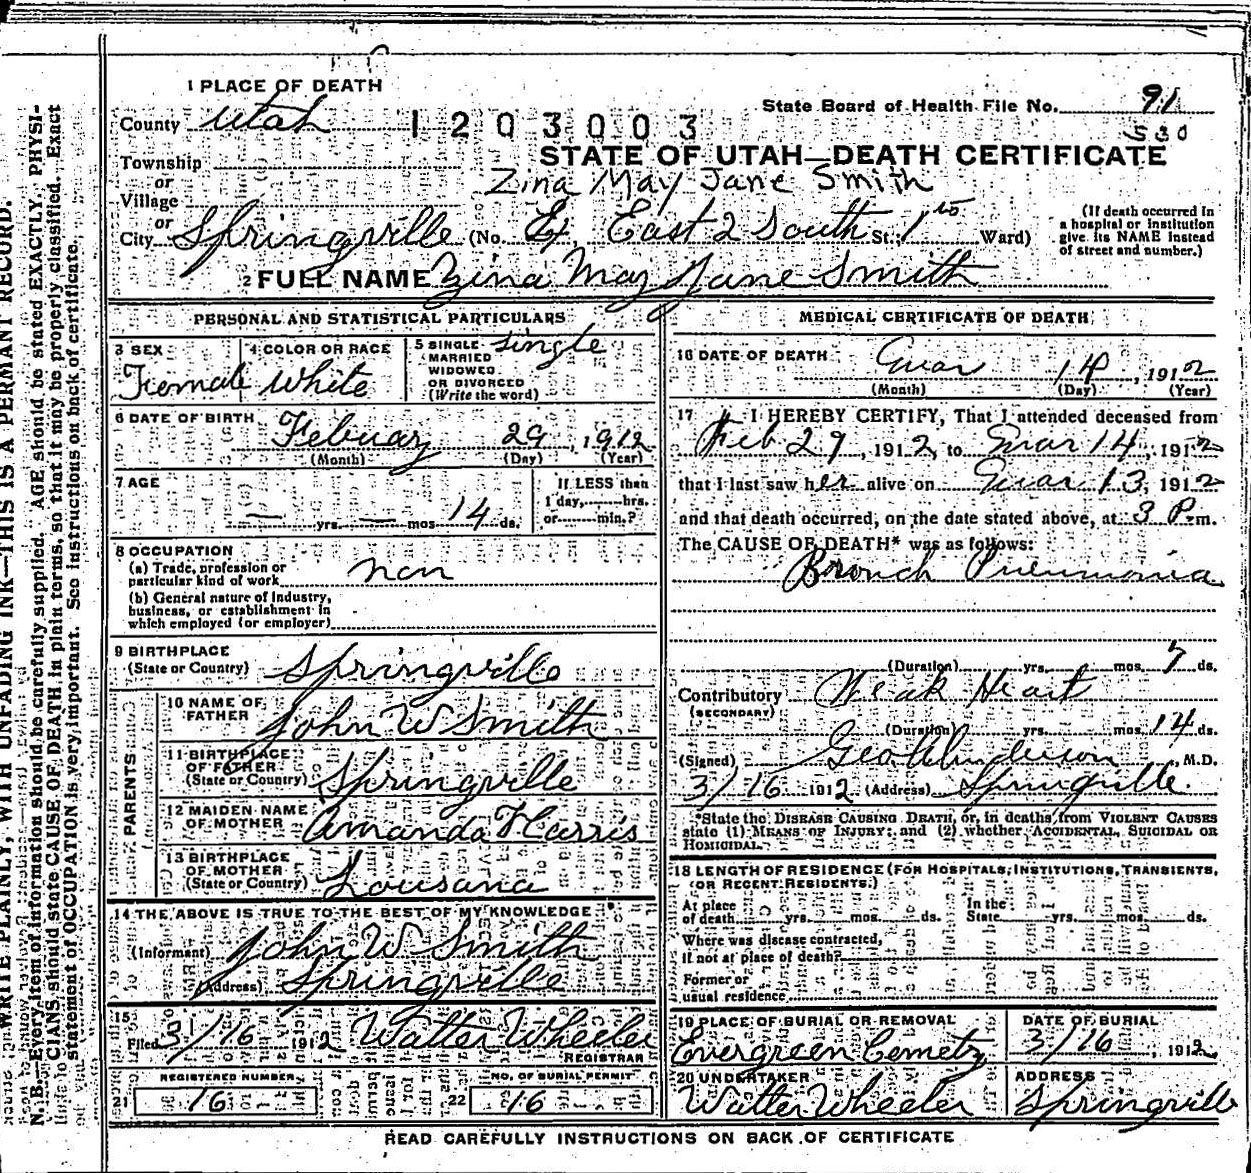 1 PLACE OF DEATH
County Utah
1203003
State Board of Health File No. 91
530
STATE OF UTAH—DEATH CERTIFICATE
Township
or
Village
Zina May Jane Smith
or
City Springville (No. East 2 South St.; 1 Ward)
(If death occurred in
a hospital or institution
give its NAME instead
of street and number.)
2 FULL NAME Zina May Jane Smith
PERSONAL AND STATISTICAL PARTICULARS
3 SEX
Femal
4 COLOR OR RACE
White
5 SINGLE Single
MARRIED
WIDOWED
OR DIVORCED
(Write the word)
6 DATE OF BIRTH
Febuary 29, 1912
(Month) (Day) (Year)
7 AGE
— yrs. — mos. 14 ds.
If LESS than
1 day, hrs.
or min.?
8 OCCUPATION
(a) Trade, profession or
particular kind of work non
(b) General nature of industry,
business, or establishment in
which employed (or employer)
9 BIRTHPLACE
(State or Country) Springville
PARENTS
10 NAME OF
FATHER John W Smith
11 BIRTHPLACE
OF FATHER
(State or Country) Springville
12 MAIDEN NAME
OF MOTHER Amanda Harris
13 BIRTHPLACE
OF MOTHER
(State or Country) Lousana
14 THE ABOVE IS TRUE TO THE BEST OF MY KNOWLEDGE
(Informant) John W Smith
(Address) Springville
15
Filed 3/16 1912 Walter Wheeler
REGISTRAR
REGISTERED NUMBER
21 16
NO. OF BURIAL PERMIT
22 16
MEDICAL CERTIFICATE OF DEATH
16 DATE OF DEATH
Mar 14, 1912
(Month) (Day) (Year)
17 I HEREBY CERTIFY, That I attended deceased from
Feb 29, 1912, to Mar 14, 1912
that I last saw her alive on Mar 13, 1912
and that death occurred, on the date stated above, at 3 P.m.
The CAUSE OF DEATH* was as follows:
Bronch Pneumonia
(Duration) yrs. mos. 7 ds.
Contributory Weak Heart
(SECONDARY)
(Duration) yrs. mos. 14 ds.
(Signed) Geo Anderson M.D.
3/16 1912 (Address) Springville.
*State the DISEASE CAUSING DEATH, or, in deaths from VIOLENT CAUSES
state (1) MEANS OF INJURY; and (2) whether ACCIDENTAL, SUICIDAL OR
HOMICIDAL.
18 LENGTH OF RESIDENCE (FOR HOSPITALS, INSTITUTIONS, TRANSIENTS,
OR RECENT RESIDENTS.)
At place
of death yrs. mos. ds.
In the
State yrs. mos. ds.
Where was disease contracted,
if not at place of death?
Former or
usual residence
19 PLACE OF BURIAL OR REMOVAL
Evergreen Cemetry
DATE OF BURIAL
3/16, 1912
20 UNDERTAKER
Walter Wheeler
ADDRESS
Springville
READ CAREFULLY INSTRUCTIONS ON BACK OF CERTIFICATE
WRITE PLAINLY, WITH UNFADING INK—THIS IS A PERMANT RECORD.
N. B.—Every item of information should be carefully supplied. AGE should be stated EXACTLY. PHYSI-
CIANS should state CAUSE OF DEATH in plain terms, so that it may be properly classified. Exact
statement of OCCUPATION is very important. See instructions on back of certificate.